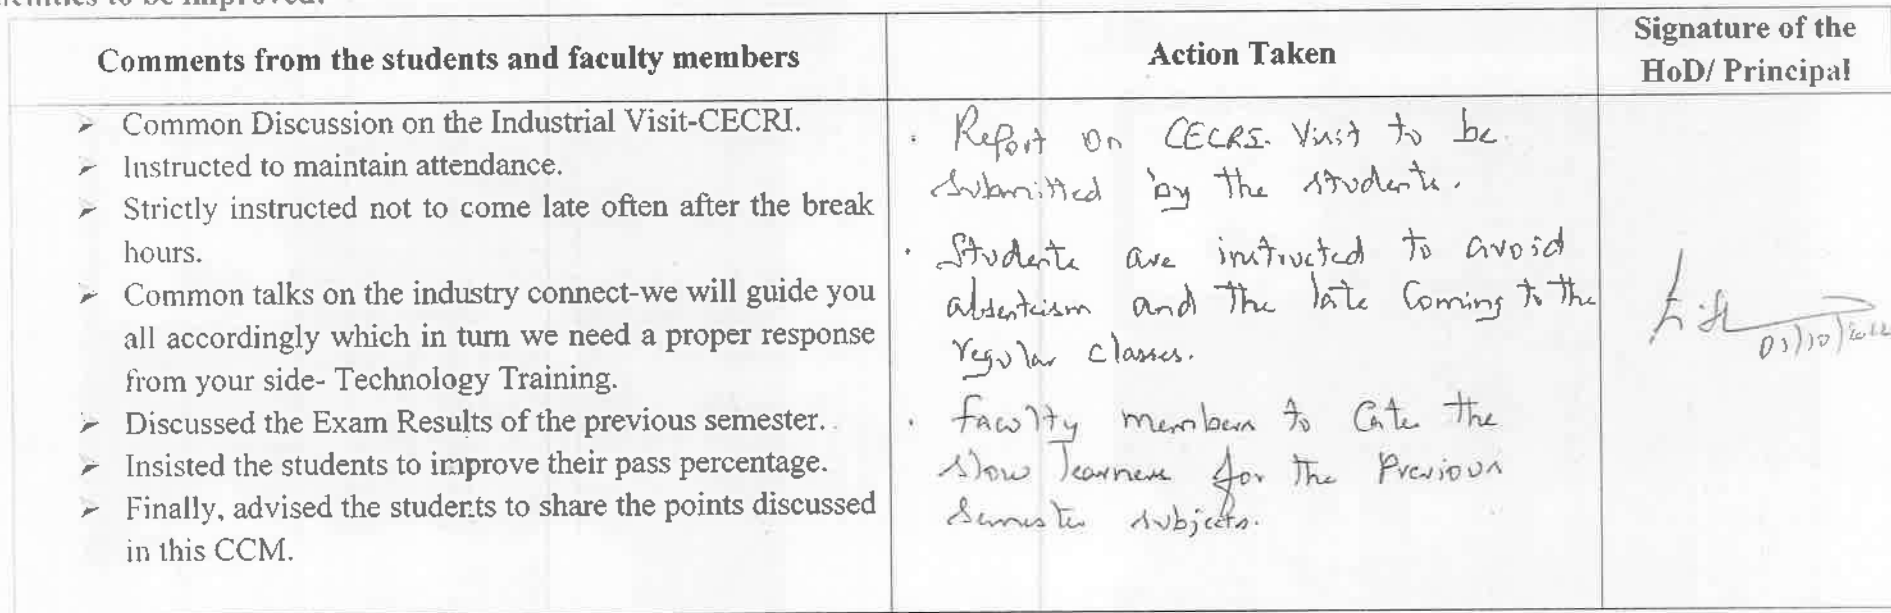 to be improved:
Comments from the students and faculty members
Action Taken
Signature of the
HoD/ Principal
➢ Common Discussion on the Industrial Visit-CECRI.
➢ Instructed to maintain attendance.
➢ Strictly instructed not to come late often after the break
hours.
➢ Common talks on the industry connect-we will guide you
all accordingly which in turn we need a proper response
from your side- Technology Training.
➢ Discussed the Exam Results of the previous semester.
➢ Insisted the students to improve their pass percentage.
➢ Finally, advised the students to share the points discussed
in this CCM.
· Report on CECRI. Visit to be
submitted by the students.
· Students are instructed to avoid
absenteism and the late Coming to the
regular classes.
· Faculty members to Cater the
slow learners for the Previous
Semester subjects.